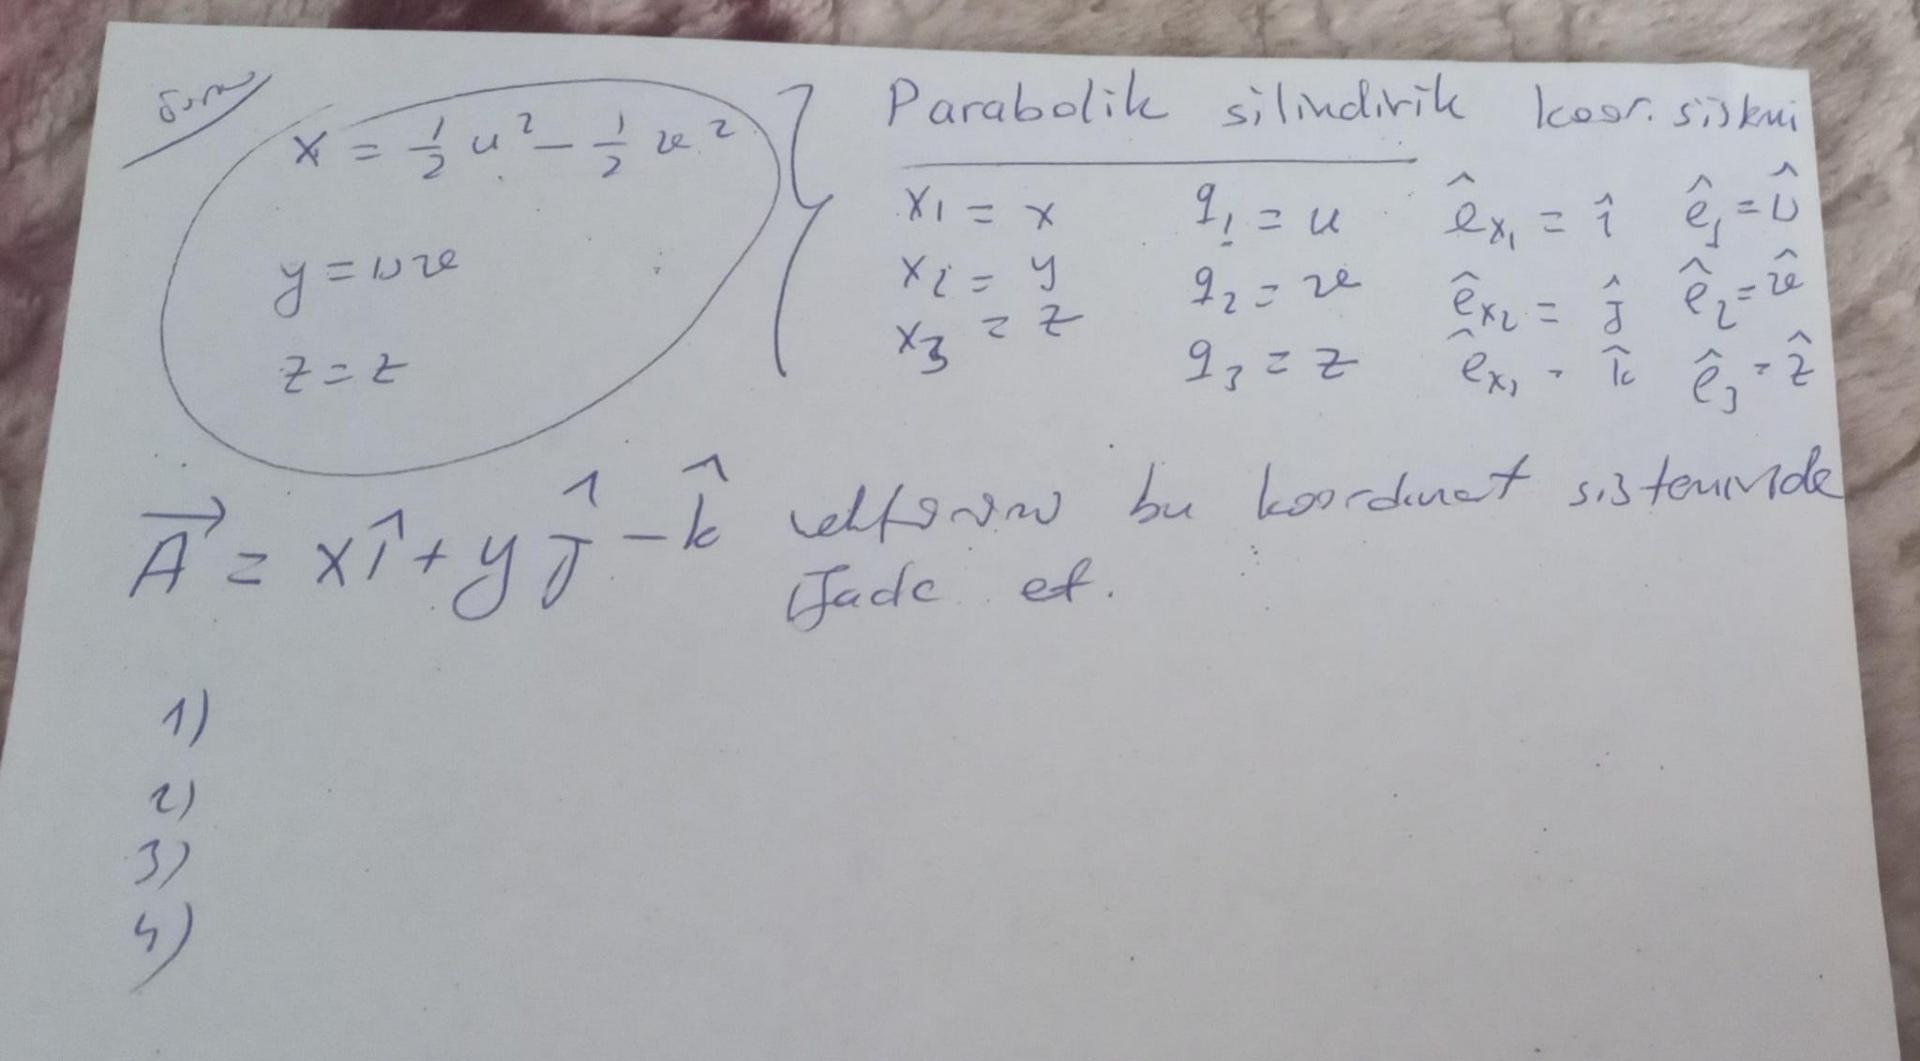 Soru
x = 1/2 u² - 1/2 v²
y = uv
z = z
Parabolik silindirik koor. sistemi
x₁ = x q₁ = u ê_x₁ = î ê₁ = û
x₂ = y q₂ = v ê_x₂ = ĵ ê₂ = v̂
x₃ = z q₃ = z ê_x₃ = k̂ ê₃ = ẑ
A⃗ = xî + yĵ - k̂ vektörünü bu koordinat sisteminde
ifade et.
1)
2)
3)
4)